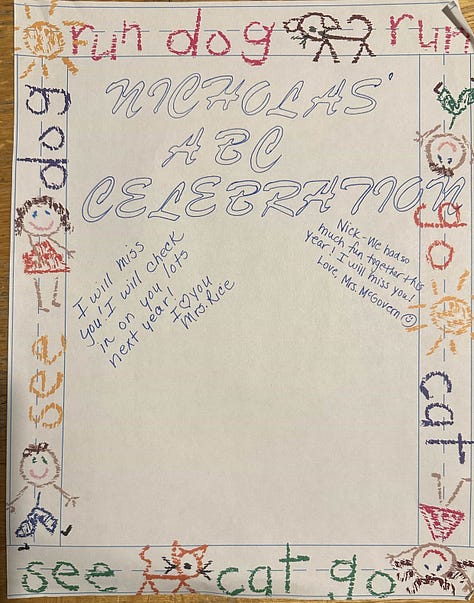 run dog run
NICHOLAS'
ABC
CELEBRATION
I will miss
you! I will check
in on you lots
next year!
I ♡ you
Mrs. Rice
Nick - We had so
much fun together this
year! I will miss you!
Love, Mrs. McGovern ☺
go
cat
see cat go
see
dog